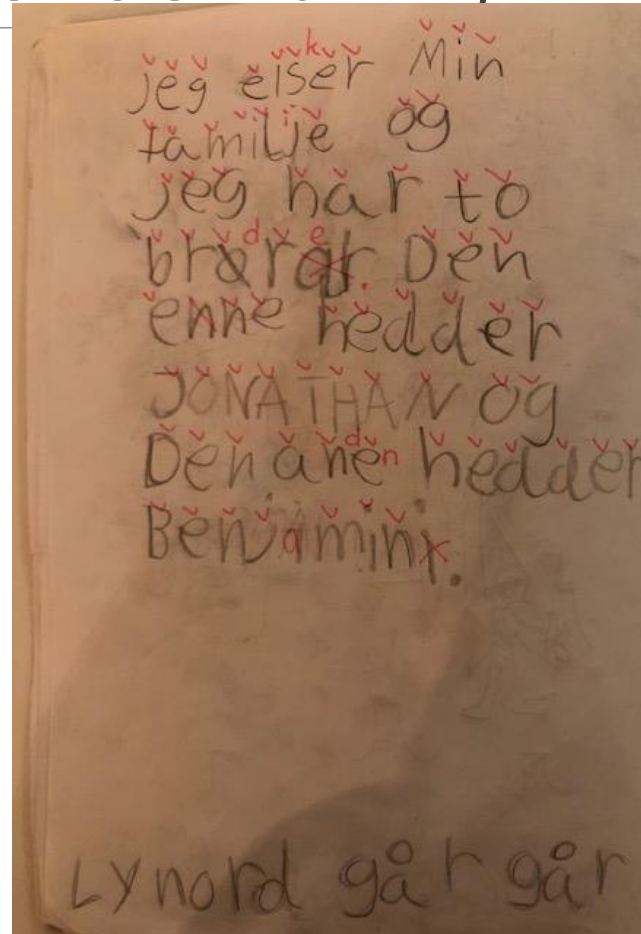 jeg elser Min
familje og
jeg har to
brørar. Den
enne hedder
JONATHAN og
Den anen hedder
Benjamini.
Lynord går går